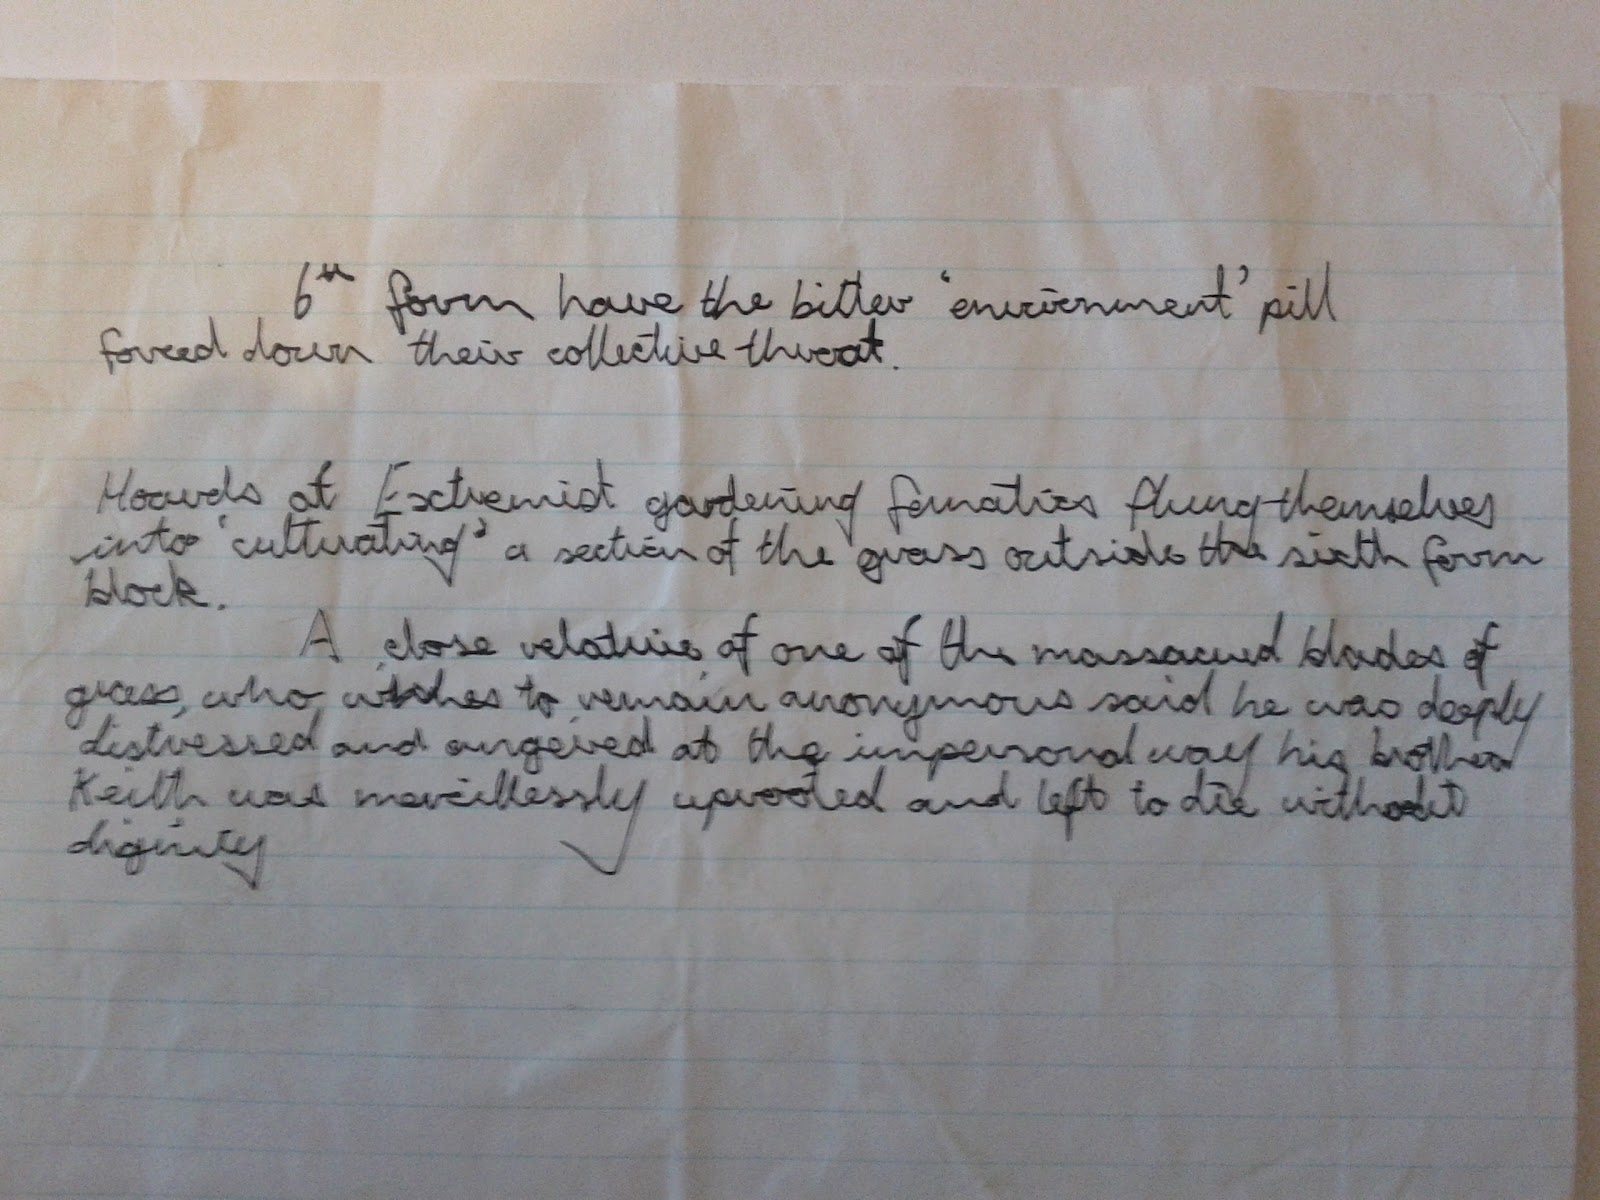 6th form have the bitter 'enviornment' pill
forced down their collective throat.
Hoards of Extremist gardening fanatics flung themselves
into 'cultivating' a section of the grass outside the sixth form
block.
A close relative of one of the massacred blades of
grass, who wishes to remain anonymous said he was deeply
distressed and angered at the impersonal way his brother
Keith was mercillessly uprooted and left to die without
dignity